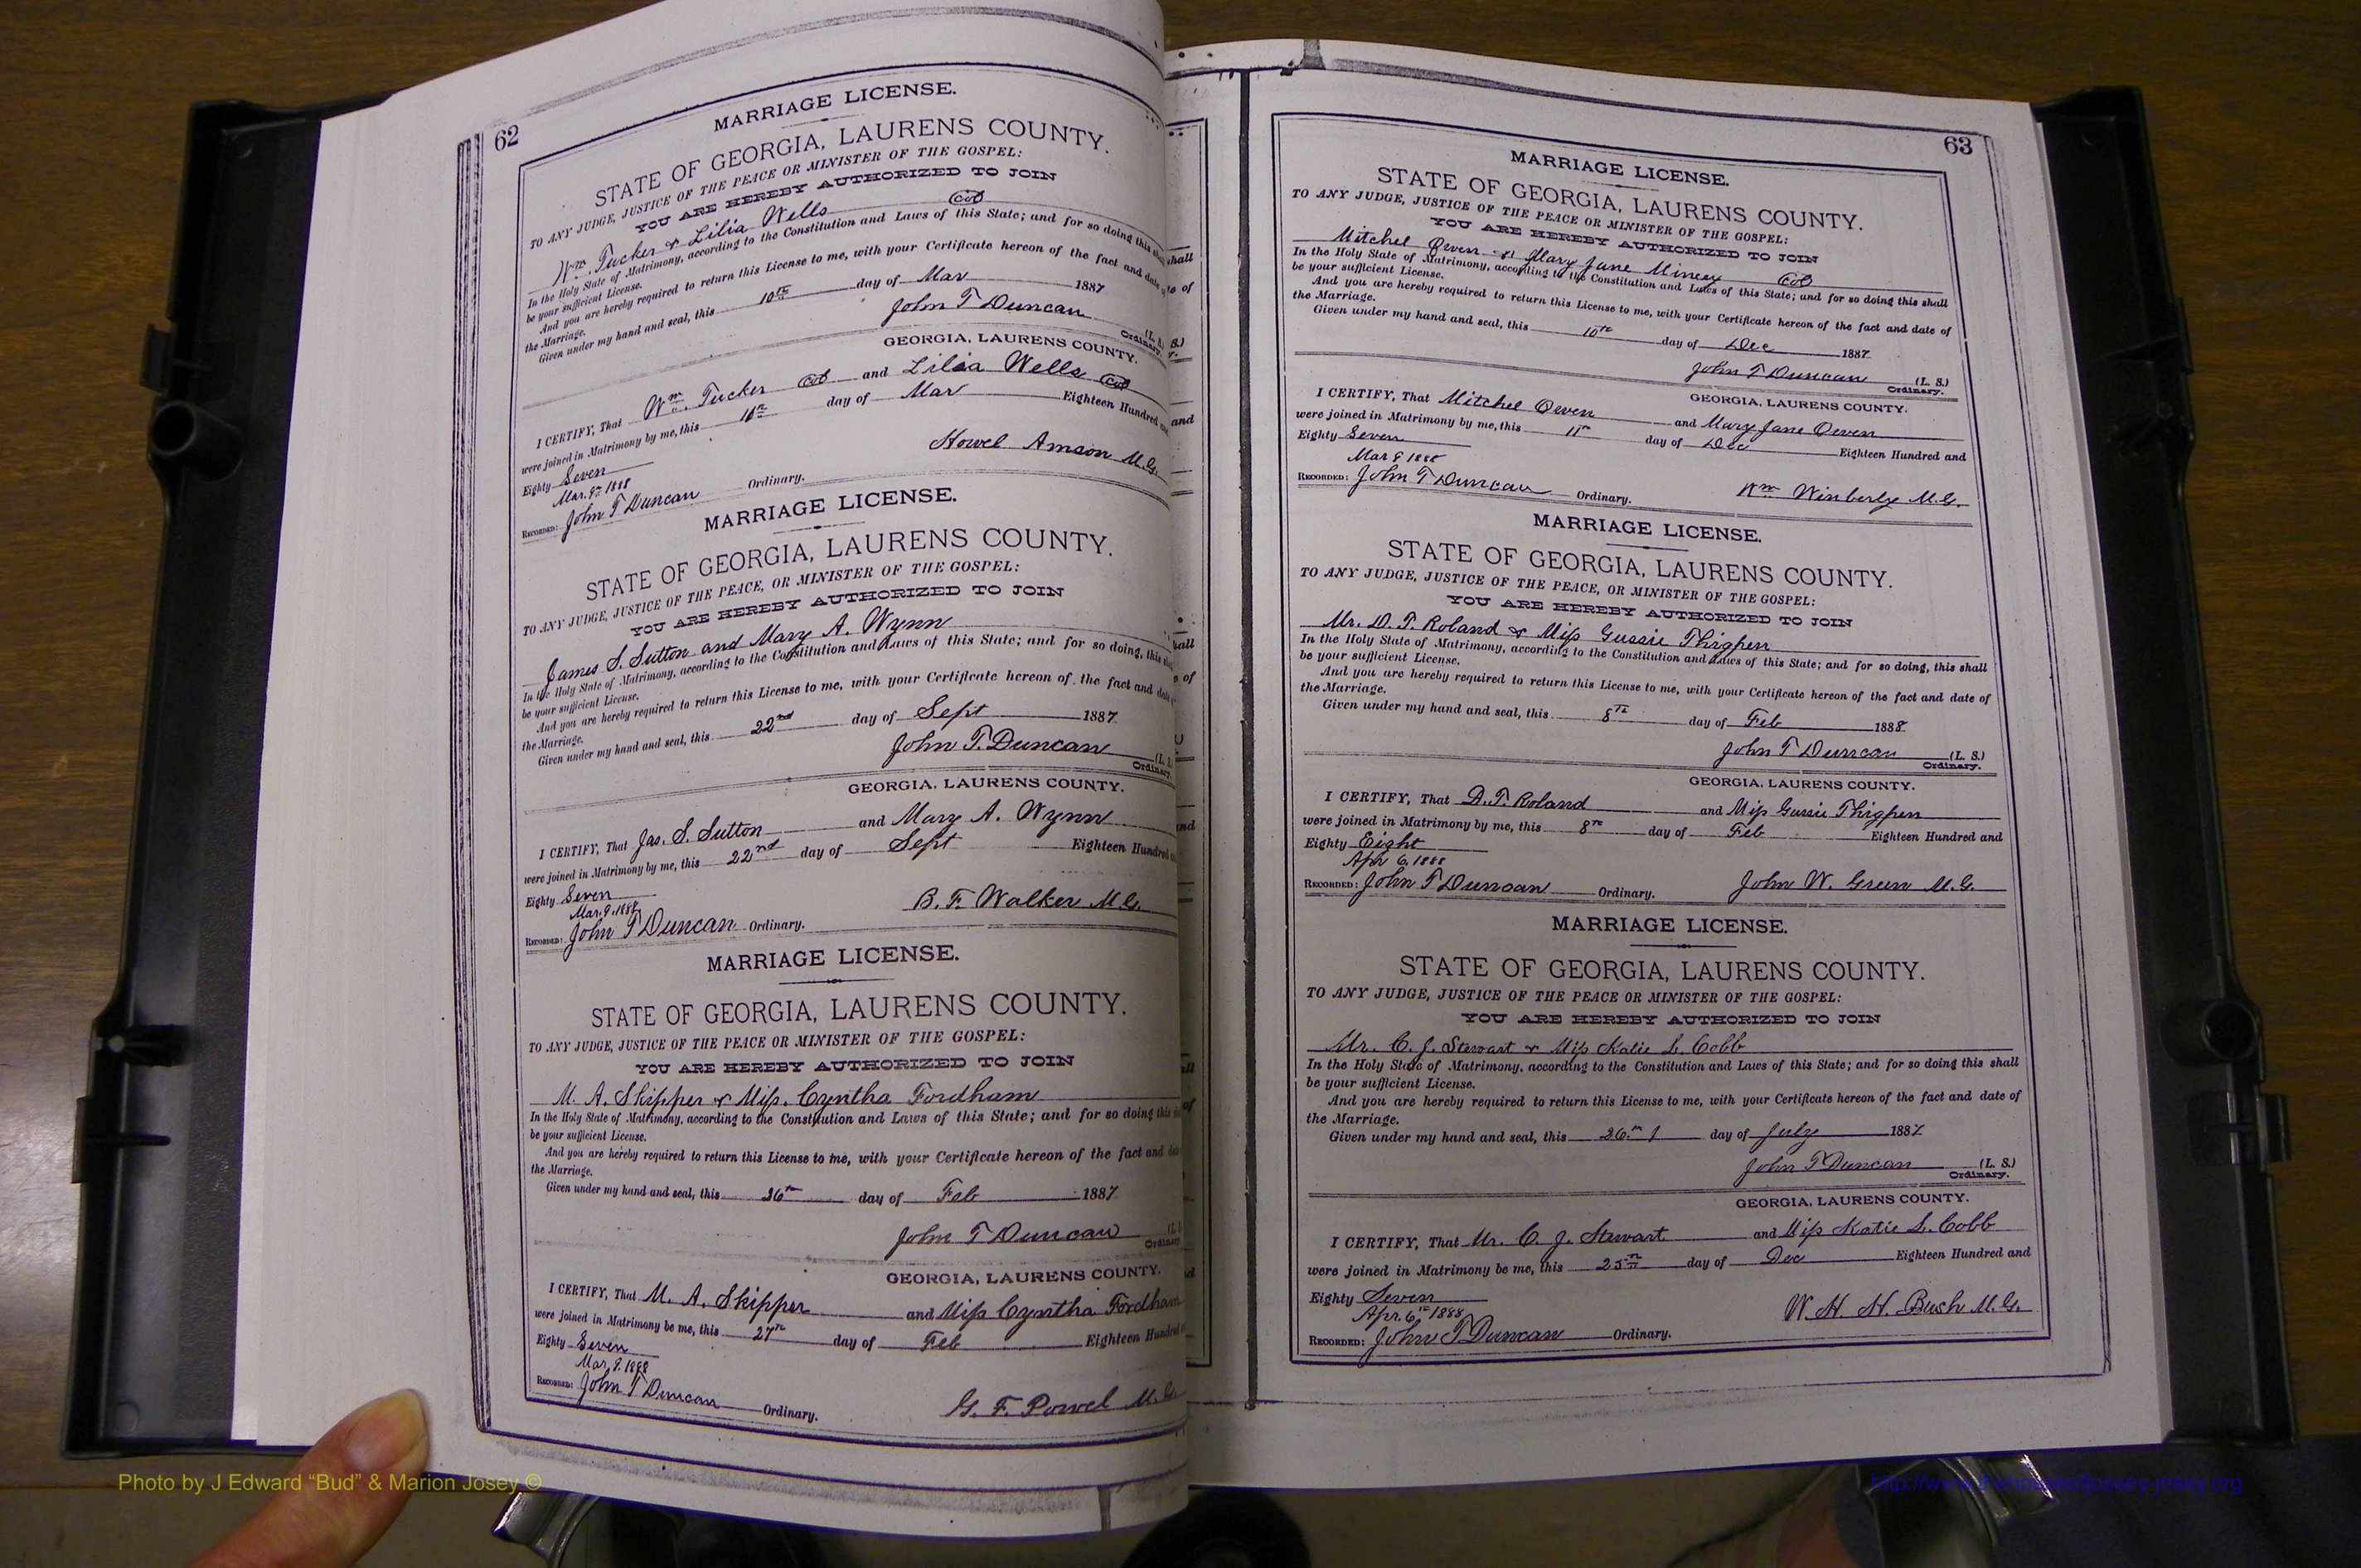 62
MARRIAGE LICENSE.
STATE OF GEORGIA, LAURENS COUNTY.
TO ANY JUDGE, JUSTICE OF THE PEACE OR MINISTER OF THE GOSPEL:
YOU ARE HEREBY AUTHORIZED TO JOIN
Wm. Tucker & Lilia Wells Col
In the Holy State of Matrimony, according to the Constitution and Laws of this State; and for so doing this shall
be your sufficient License.
And you are hereby required to return this License to me, with your Certificate hereon of the fact and date of
the Marriage.
Given under my hand and seal, this 10th day of Mar 1887
John T Duncan (L. S.)
Ordinary.
GEORGIA, LAURENS COUNTY.
I CERTIFY, That Wm. Tucker Col and Lilia Wells Col
were joined in Matrimony by me, this 10th day of Mar Eighteen Hundred and
Eighty Seven
Howel Amason M.G.
Mar. 9th 1888
RECORDED: John T Duncan Ordinary.
MARRIAGE LICENSE.
STATE OF GEORGIA, LAURENS COUNTY.
TO ANY JUDGE, JUSTICE OF THE PEACE, OR MINISTER OF THE GOSPEL:
YOU ARE HEREBY AUTHORIZED TO JOIN
James S. Sutton and Mary A. Wynn
In the Holy State of Matrimony, according to the Constitution and Laws of this State; and for so doing, this
be your sufficient License.
And you are hereby required to return this License to me, with your Certificate hereon of the fact and date
the Marriage.
Given under my hand and seal, this 22nd day of Sept 1887
John T. Duncan (L. S.
Ordinary.
GEORGIA, LAURENS COUNTY.
I CERTIFY, That Jas. S. Sutton and Mary A. Wynn
were joined in Matrimony by me, this 22nd day of Sept Eighteen Hundred
Eighty Seven
B. F. Walker M.G.
Mar. 9. 1888
RECORDED: John T Duncan Ordinary.
MARRIAGE LICENSE.
STATE OF GEORGIA, LAURENS COUNTY.
TO ANY JUDGE, JUSTICE OF THE PEACE OR MINISTER OF THE GOSPEL:
YOU ARE HEREBY AUTHORIZED TO JOIN
M. A. Skipper & Miss. Cyntha Fordham
In the Holy State of Matrimony, according to the Constitution and Laws of this State; and for so doing this
be your sufficient License.
And you are hereby required to return this License to me, with your Certificate hereon of the fact and
the Marriage.
Given under my hand and seal, this 26th day of Feb 1887
John T Duncan
Ordinary
GEORGIA, LAURENS COUNTY.
I CERTIFY, That M. A. Skipper and Miss Cyntha Fordham
were joined in Matrimony be me, this 27th day of Feb Eighteen Hundred
Eighty Seven
Mar. 9. 1888
RECORDED: John T Duncan Ordinary.
G. F. Powel M.G.
63
MARRIAGE LICENSE.
STATE OF GEORGIA, LAURENS COUNTY.
TO ANY JUDGE, JUSTICE OF THE PEACE OR MINISTER OF THE GOSPEL:
YOU ARE HEREBY AUTHORIZED TO JOIN
Mitchel Owen & Mary Jane Mincey Col
In the Holy State of Matrimony, according to the Constitution and Laws of this State; and for so doing this shall
be your sufficient License.
And you are hereby required to return this License to me, with your Certificate hereon of the fact and date of
the Marriage.
Given under my hand and seal, this 10th day of Dec 1887
John T Duncan (L. S.)
Ordinary.
GEORGIA, LAURENS COUNTY.
I CERTIFY, That Mitchel Owen and Mary Jane Owen
were joined in Matrimony by me, this 11th day of Dec Eighteen Hundred and
Eighty Seven
Mar 9 1888
RECORDED: John T Duncan Ordinary.
Wm Winberly M.G.
MARRIAGE LICENSE.
STATE OF GEORGIA, LAURENS COUNTY.
TO ANY JUDGE, JUSTICE OF THE PEACE, OR MINISTER OF THE GOSPEL:
YOU ARE HEREBY AUTHORIZED TO JOIN
Mr. D. T. Roland & Miss Gussie Thigpen
In the Holy State of Matrimony, according to the Constitution and Laws of this State; and for so doing, this shall
be your sufficient License.
And you are hereby required to return this License to me, with your Certificate hereon of the fact and date of
the Marriage.
Given under my hand and seal, this 8th day of Feb 1888
John T Duncan (L. S.)
Ordinary.
GEORGIA, LAURENS COUNTY.
I CERTIFY, That D. T. Roland and Miss Gussie Thigpen
were joined in Matrimony by me, this 8th day of Feb Eighteen Hundred and
Eighty Eight
Apr 6. 1888
RECORDED: John T Duncan Ordinary.
John W. Green M.G.
MARRIAGE LICENSE.
STATE OF GEORGIA, LAURENS COUNTY.
TO ANY JUDGE, JUSTICE OF THE PEACE OR MINISTER OF THE GOSPEL:
YOU ARE HEREBY AUTHORIZED TO JOIN
Mr. C. J. Stewart & Miss Katie L. Cobb
In the Holy State of Matrimony, according to the Constitution and Laws of this State; and for so doing this shall
be your sufficient License.
And you are hereby required to return this License to me, with your Certificate hereon of the fact and date of
the Marriage.
Given under my hand and seal, this 26th day of July 1887
John T Duncan (L. S.)
Ordinary.
GEORGIA, LAURENS COUNTY.
I CERTIFY, That Mr. C. J. Stewart and Miss Katie L. Cobb
were joined in Matrimony be me, this 25th day of Dec Eighteen Hundred and
Eighty Seven
W. H. H. Bush M.G.
Apr. 6th 1888
RECORDED: John T Duncan Ordinary.
Photo by J Edward "Bud" & Marion Josey ©
http://www.thehouseofjossey-josey.org